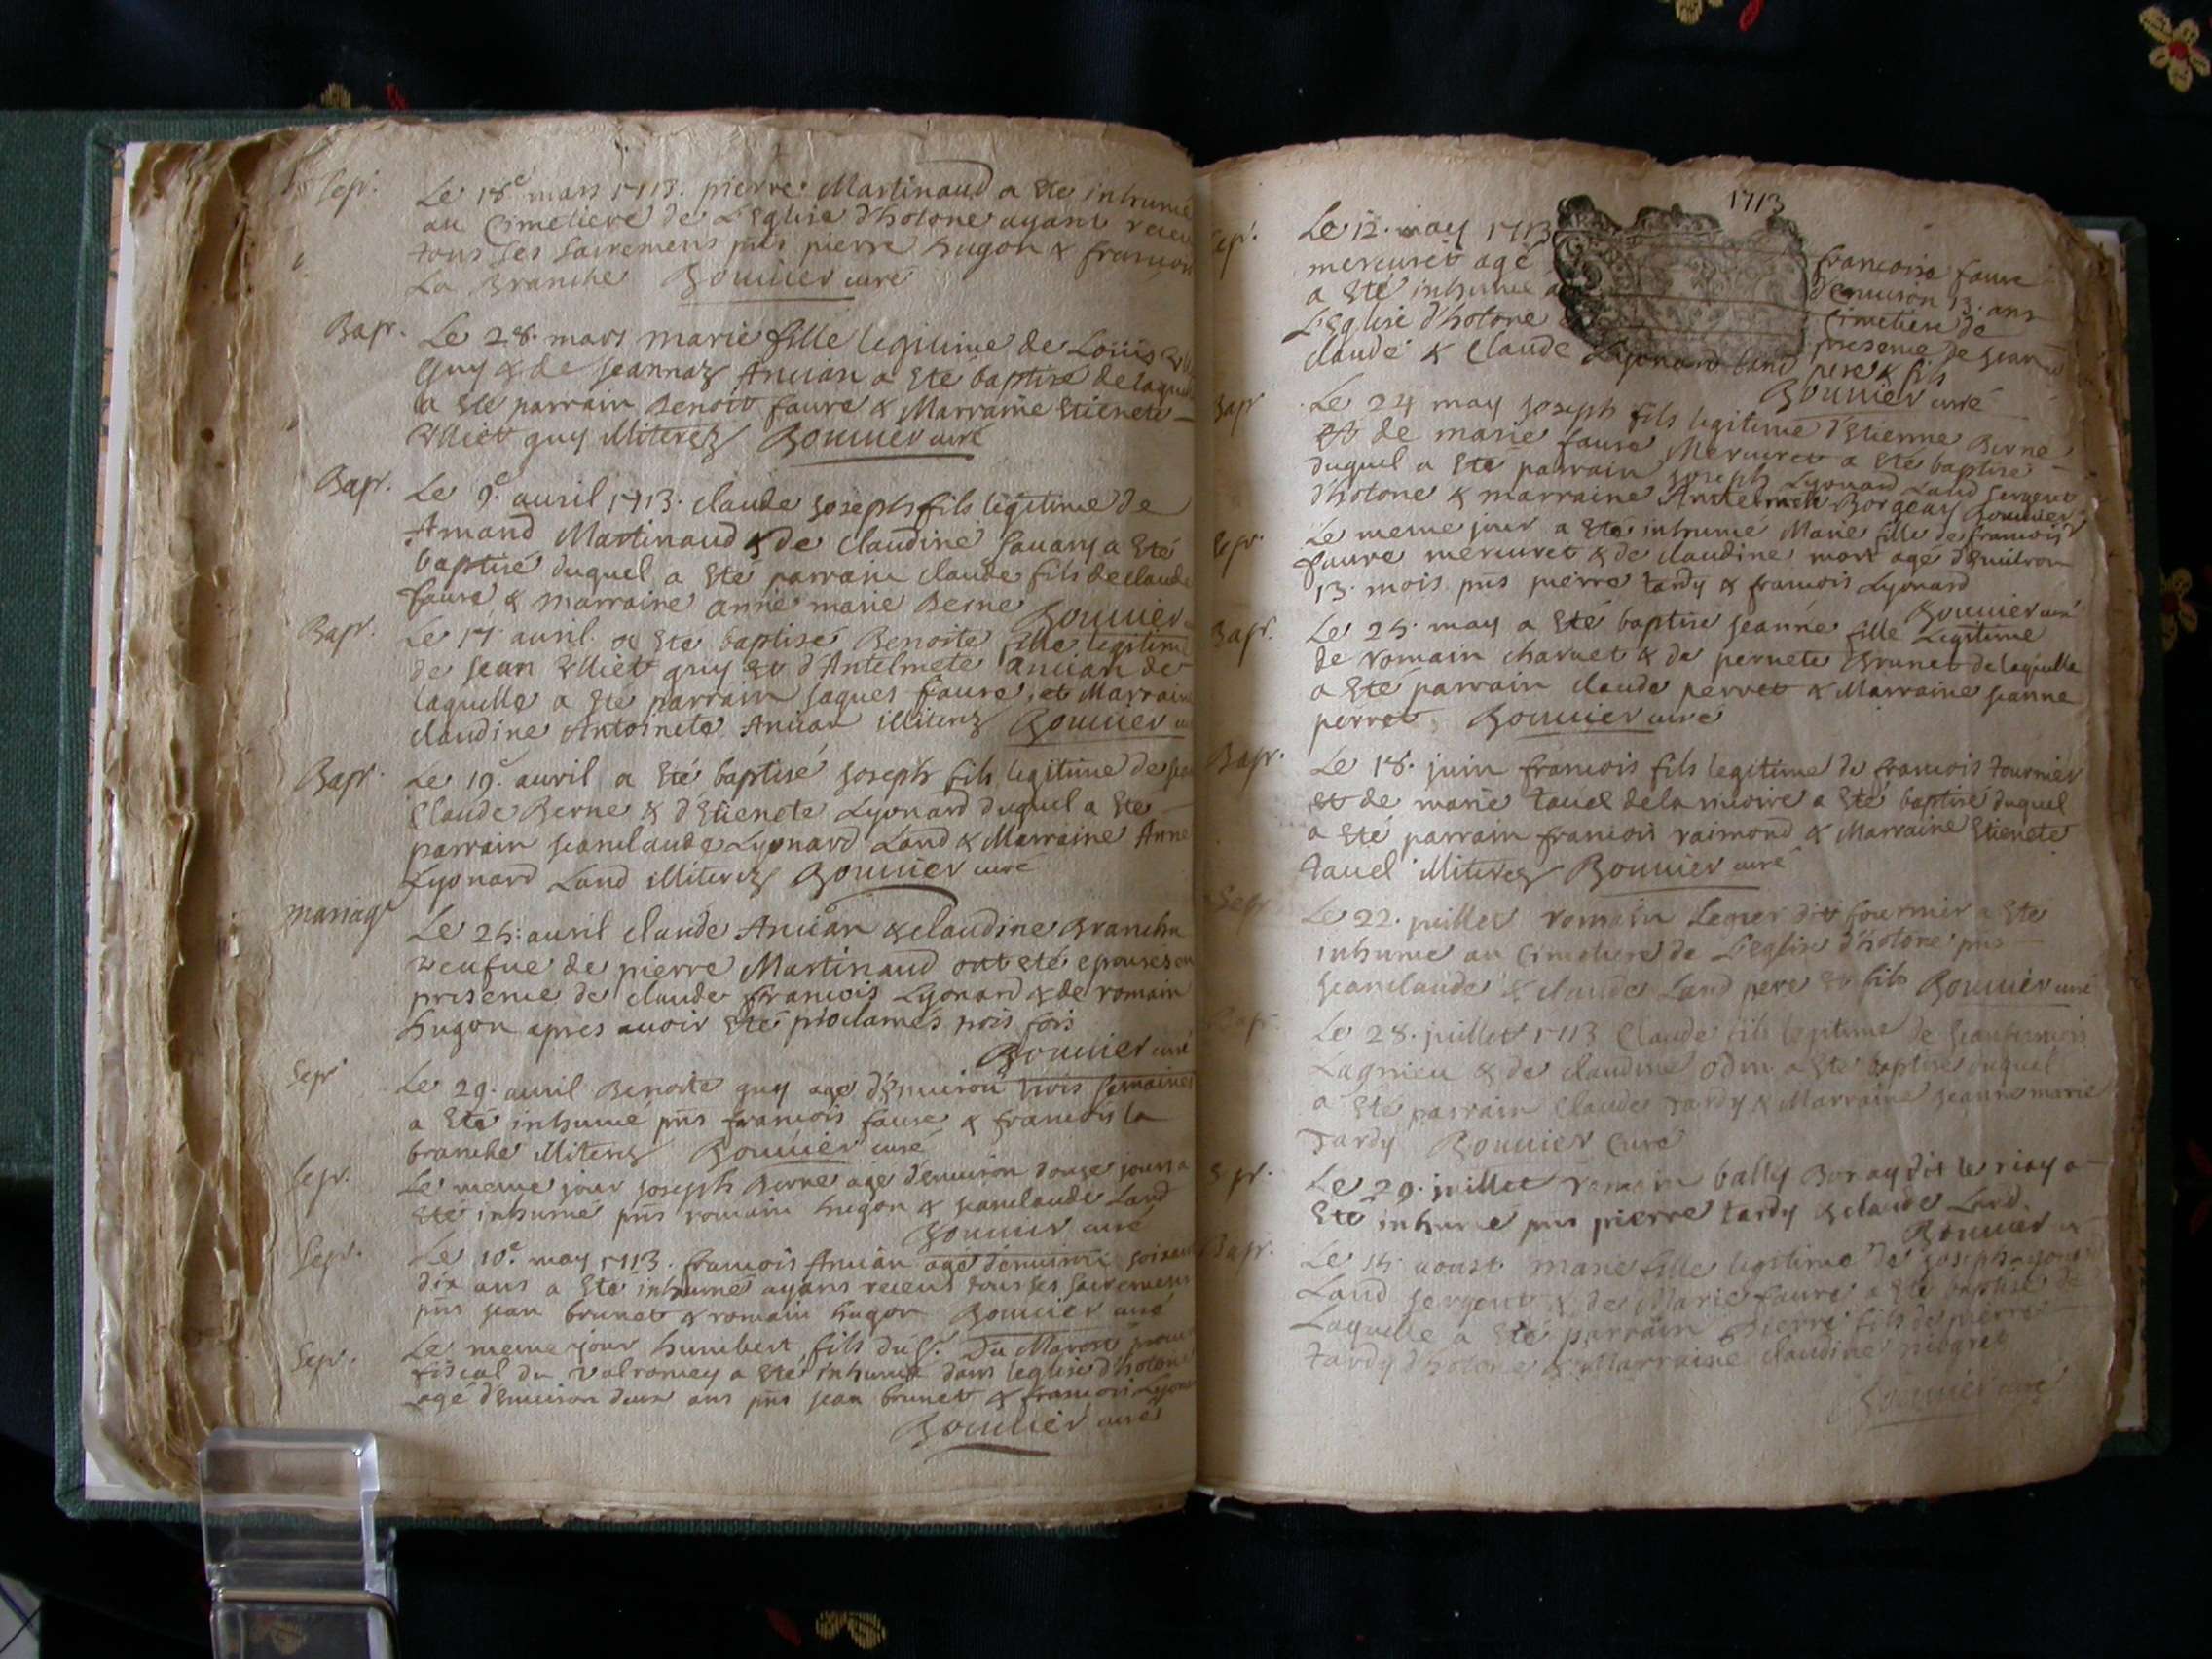 Sepr. Le 18e mars 1713. pierre Martinaud a Eté inhumé
au Cimetiere de L'Eglise d'hotone ayant receu
tous ses sacremens pns pierre hugon & francois
La Branche Bouuier curé
Bapt. Le 28. mars marie fille legitime de Loüis
Guy & de Jeannaz Anciàn a Eté baptisé de laquelle
a Eté parrain Benoit faure & Marraine Etienete
guy illiterez Bouuier curé
Bapt. Le 9e. auril 1713. claude Joseph fils legitime de
Amand Martinaud & de Claudine sauarz a Eté
baptisé duquel a Eté parrain claude fils de claude
faure & marraine anne marie Berne Bouuier
Bapt. Le 17 auril a Eté baptisé Benoite fille legitime
de Jean guy et d'Antelmete ancian de
laquelle a Eté parrain Jaques faure, et Marraine
claudine Antoinete Ancian illiterez Bouuier
Bapt. Le 19e. auril a Eté baptisé Joseph fils legitime de Jean
Claude Berne & d'Etienete Lyonard duquel a Eté
parrain Jeanclaude Lyonard Land & Marraine Anne
Lyonard Land illiterez Bouuier curé
mariage Le 25. auril claude Anciàn & claudine Branche
veufue de pierre Martinaud ont eté epousés en
presence de claude francois Lyonard & de romain
hugon apres auoir Eté proclamés trois fois
Bouuier curé
Sepr Le 29. auril Benoite guy agé d'Enuiron trois semaines
a Eté inhumé pns francois faure & francois la
branche illiterez Bouuier curé
Sepr. Le meme jour Joseph Berne agé d'enuiron douze jours a
Eté inhumé pns romain hugon & Jeanclaude Land
Bouuier curé
Sepr. Le 10e. may 1713. francois Anciàn agé d'enuiron soixante
dix ans a Eté inhumé ayans receus tous ses sacremens
pns Jean brunet & romain hugon Bouuier curé
Sepr. Le meme jour humbert fils du Sr. Du Marest
fiscal du Valromey a Eté inhumé dans leglise d'hotone
agé d'Enuiron deux ans pns Jean brunet & francois
Bouuier curé
1713
Sepr. Le 12. may 1713 francoise faure
mercuret agé d'Enuiron 13. ans
a Eté inhumé a Cimetiere de
L'Eglise d'hotone presence de Jean
claude & Claude Lyonard Land pere & fils
Bouuier curé
Bapt Le 24 may Joseph fils legitime d'Etienne Berne
et de marie faure Mercuret a Eté baptisé
duquel a Eté parrain Joseph Lyonard Land sergent
d'hotone & marraine Antelmete Borgeay Bouuier
Sepr Le meme jour a Eté inhumé Marie fille de francois
faure mercuret & de claudine mort agé d'Enuiron
13. mois pns pierre tardy & francois Lyonard
Bouuier curé
Bapt. Le 25. may a Eté baptisé Jeanne fille Legitime
de romain charuet & de pernete Brunet de laquelle
a Eté parrain claude perret & Marraine Jeanne
perret, Bouuier curé
Bapt. Le 18. juin francois fils legitime de francois tournier
et de marie tauel a Eté baptisé duquel
a Eté parrain francois raimond & Marraine Etienete
tauel illiterez Bouuier curé
Sepr Le 22. juillet romain dit fournier a Eté
inhumé au Cimetiere de L'eglise d'hotone pns
Jeanclaude & claude Land pere et fils Bouuier curé
Bapt Le 28. juillet 1713 Claude fils legitime de Jeanfrancois
Lagnieu & de claudine odin a Eté baptisé duquel
a Eté parrain Claude Tardy & Marraine Jeanne marie
Tardy Bouuier Curé
Sepr. Le 29. juillet romain bally Boray dit le riay a
Eté inhumé pns pierre tardy & claude Land
Bouuier
Bapt. Le 15. aoust marie fille legitime de Joseph
Land sergent & de Marie faure a Eté baptisé de
Laquelle a Eté parrain pierre fils de pierre
tardy d'hotone & Marraine claudine
Bouuier curé